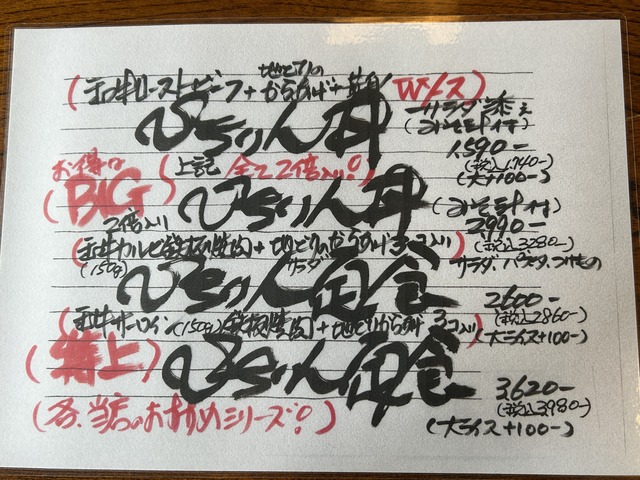 地どりの
(和牛ローストビーフ + からあげ + 黄身 Wソース)
ぴらりん丼 サラダ添え
(みそ汁付)
1,590-
(税込1,740-)
(大+100-)
お得な
(BIG) 上記 全て2倍入り!
ぴらりん丼 (みそ汁付)
2990-
(税込3280-)
2倍入り
(和牛カルビ鉄板焼肉 + 地どりからあげ3コ入り)
(150g) サラダ
サラダ、パスタ、つけもの
ぴらりん定食
2600-
(税込2860-)
(大ライス+100-)
(和牛サーロイン(150g)鉄板焼肉 + 地どりからあげ 3コ入り)
(特上) ぴらりん定食
3,620-
(税込3,980-)
(大ライス+100-)
(各、当店のおすすめシリーズ!)